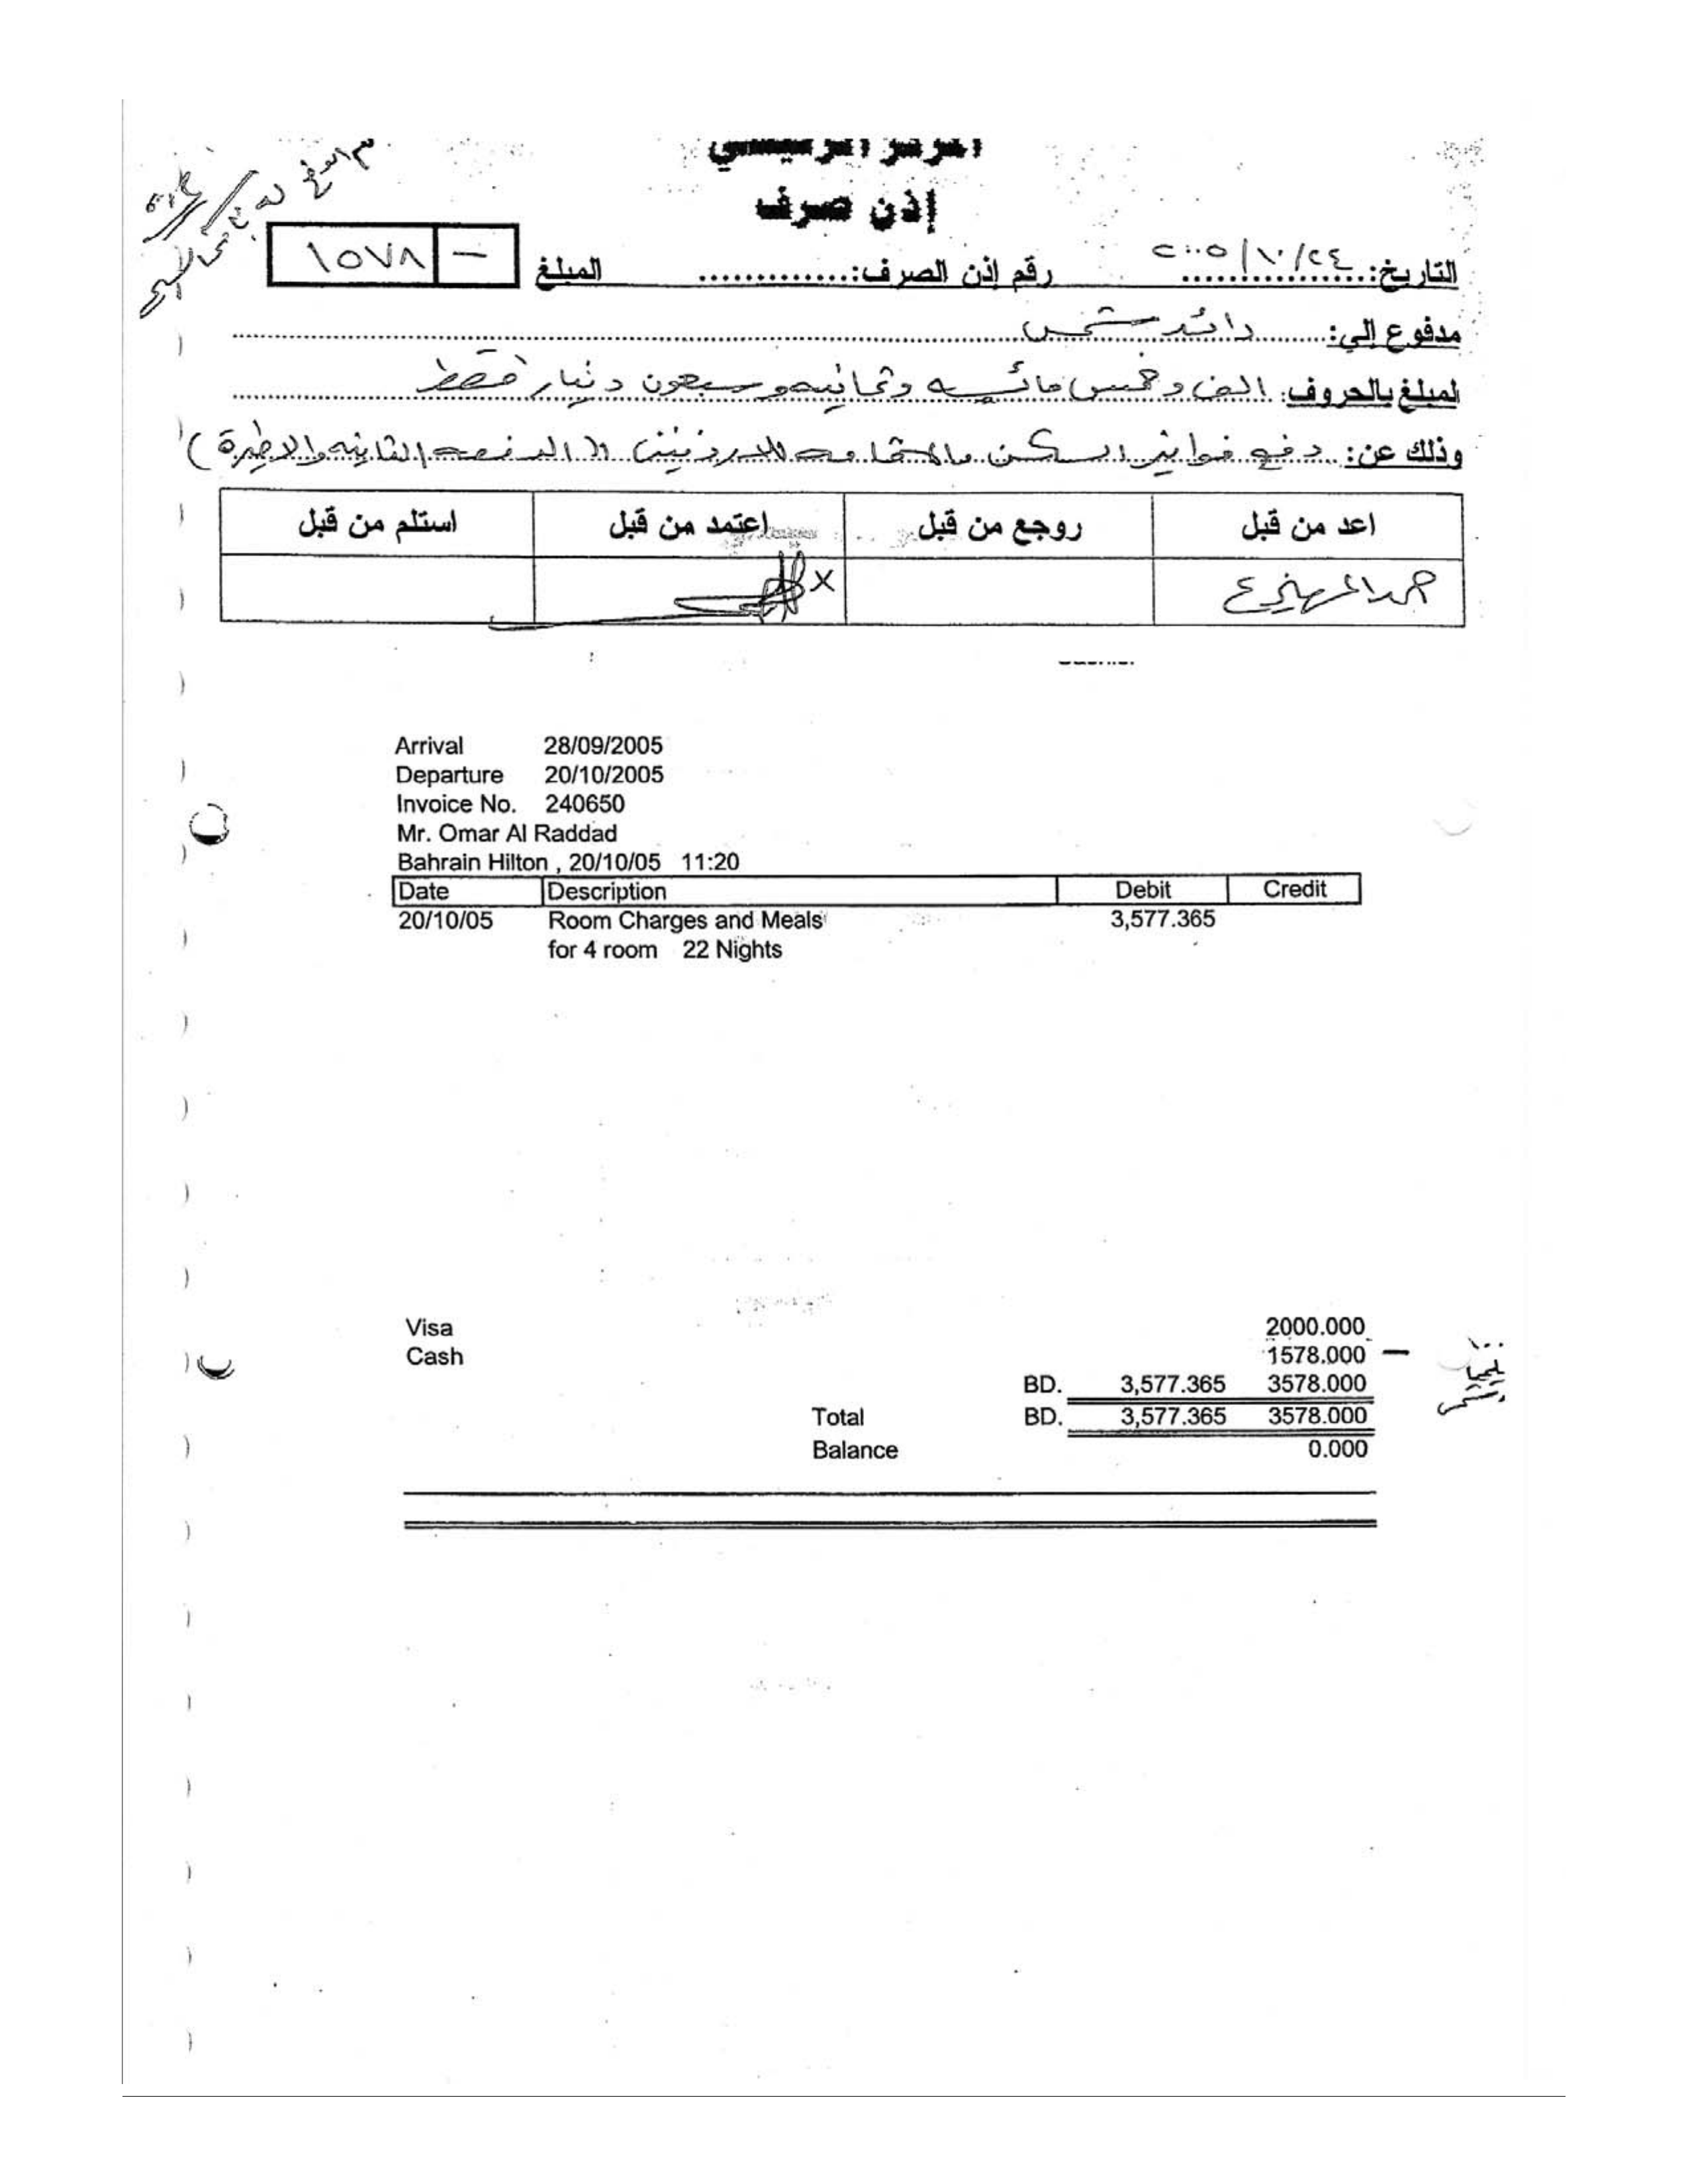 المركز الرئيسي
إذن صرف
التاريخ: ٢٠٠٥/١٠/٢٤ رقم إذن الصرف:.............. المبلغ - ١٥٧٨
مدفوع إلى: رائد شمس
لمبلغ بالحروف: الف وخمس مائه وثمانيه وسبعون دينار فقط
وذلك عن: دفع فواتير السكن والاقامه للاردنيين (الدفعه الثانيه والاخيرة)
اعد من قبل روجع من قبل اعتمد من قبل استلم من قبل
x
Arrival 28/09/2005
Departure 20/10/2005
Invoice No. 240650
Mr. Omar Al Raddad
Bahrain Hilton , 20/10/05 11:20
Date Description Debit Credit
20/10/05 Room Charges and Meals 3,577.365
for 4 room 22 Nights
Visa 2000.000
Cash 1578.000 —
BD. 3,577.365 3578.000
Total BD. 3,577.365 3578.000
Balance 0.000